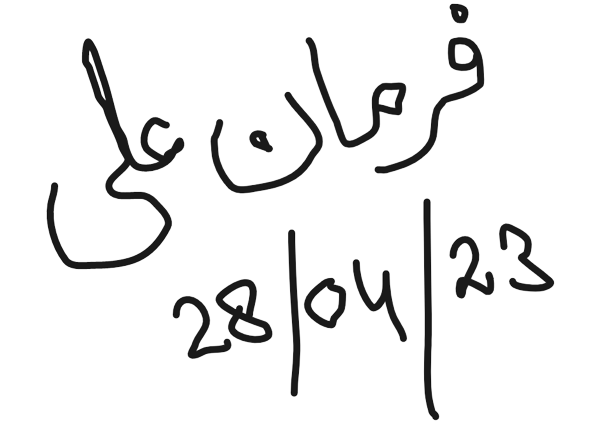 فرمان علی
28/04/23